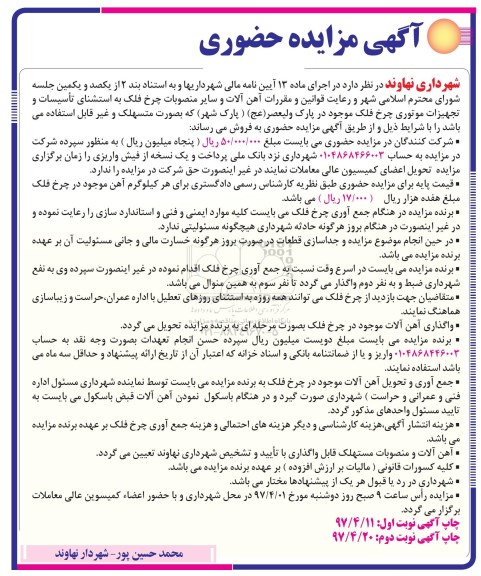 آگهی مزایده حضوری
شهرداری نهاوند در نظر دارد در اجرای ماده ۱۳ آیین نامه مالی شهرداریها و به استناد بند ۲ از یکصد و یکمین جلسه
شورای محترم اسلامی شهر و رعایت قوانین و مقررات آهن آلات و سایر منصوبات چرخ فلک به استثنای تأسیسات و
تجهیزات موتوری چرخ فلک موجود در پارک ولیعصر(عج) ( پارک شهر) که بصورت مستهلک و غیر قابل استفاده می
باشد را با شرایط ذیل و از طریق آگهی مزایده حضوری به فروش می رساند:
▪ شرکت کنندگان در مزایده حضوری می بایست مبلغ ۵۰/۰۰۰/۰۰۰ ریال ( پنجاه میلیون ریال ) به منظور سپرده شرکت
در مزایده به حساب ۰۱۰۴۸۶۸۴۶۶۰۰۳ شهرداری نزد بانک ملی پرداخت و یک نسخه از فیش واریزی را زمان برگزاری
مزایده تحویل اعضای کمیسیون عالی معاملات نمایند در غیر اینصورت حق شرکت در مزایده را ندارد.
▪ قیمت پایه برای مزایده حضوری طبق نظریه کارشناس رسمی دادگستری برای هر کیلوگرم آهن موجود در چرخ فلک
مبلغ هفده هزار ریال ( ۱۷/۰۰۰ ریال ) می باشد.
▪ برنده مزایده در هنگام جمع آوری چرخ فلک می بایست کلیه موارد ایمنی و فنی و استاندارد سازی را رعایت نموده و
در غیر اینصورت در هنگام بروز هرگونه حادثه شهرداری هیچگونه مسئولیتی ندارد.
▪ در حین انجام موضوع مزایده و جداسازی قطعات در صورت بروز هرگونه خسارت مالی و جانی مسئولیت آن بر عهده
برنده مزایده می باشد.
▪ برنده مزایده می بایست در اسرع وقت نسبت به جمع آوری چرخ فلک اقدام نموده در غیر اینصورت سپرده وی به نفع
شهرداری ضبط و به نفر دوم واگذار می گردد تا نفر سوم به همین منوال می باشد.
▪ متقاضیان جهت بازدید از چرخ فلک می توانند همه روزه به استثنای روزهای تعطیل با اداره عمران،حراست و زیباسازی
هماهنگ نمایند.
▪ واگذاری آهن آلات موجود در چرخ فلک بصورت مرحله ای به برنده مزایده تحویل می گردد.
▪ برنده مزایده می بایست مبلغ دویست میلیون ریال سپرده حسن انجام تعهدات بصورت وجه نقد به حساب
۰۱۰۴۸۶۸۴۴۶۰۰۳ واریز و یا از ضمانتنامه بانکی و اسناد خزانه که اعتبار آن از تاریخ ارائه پیشنهاد و حداقل سه ماه می
باشد استفاده نمایند.
▪ جمع آوری و تحویل آهن آلات موجود در چرخ فلک به برنده مزایده می بایست توسط نماینده شهرداری مسئول اداره
فنی و عمرانی و حراست ) شهرداری صورت گیرد و در هنگام باسکول نمودن آهن آلات قبض باسکول می بایست به
تایید مسئول واحدهای مذکور گردد.
▪ هزینه انتشار آگهی،هزینه کارشناسی و دیگر هزینه های احتمالی و هزینه جمع آوری چرخ فلک بر عهده برنده مزایده
می باشد.
▪ آهن آلات و منصوبات مستهلک قابل واگذاری با تأیید و تشخیص شهرداری نهاوند تعیین می گردد.
▪ کلیه کسورات قانونی ( مالیات بر ارزش افزوده ) بر عهده برنده مزایده می باشد.
▪ شهرداری در رد یا قبول هر یک از پیشنهادها مختار می باشد.
▪ مزایده رأس ساعت ۹ صبح روز دوشنبه مورخ ۹۷/۴/۰۱ در محل شهرداری و با حضور اعضاء کمیسیون عالی معاملات
برگزار می گردد.
چاپ آگهی نوبت اول: ۹۷/۴/۱۱
چاپ آگهی نوبت دوم: ۹۷/۴/۲۰
محمد حسین پور- شهردار نهاوند